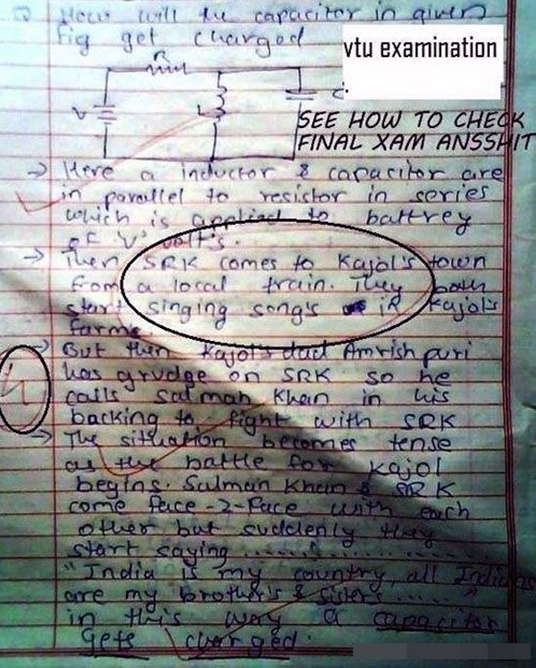 Q How will the capacitor in given
fig get charged
vtu examination
R
V
L
C
SEE HOW TO CHECK
FINAL XAM ANSSHIT
→ Here a inductor & capacitor are
in parallel to resistor in series
which is applied to battrey
of 'V' volt's.
→ Then SRK comes to Kajol's town
from a local train. They both
start singing song's in Kajol's
farm.
→ But then Kajol's dad Amrish puri
has grudge on SRK so he
calls Salman Khan in his
backing to fight with SRK
→ The situation becomes tense
as the battle for Kajol
begins. Salman Khan & SRK
come face-2-face with each
other but suddenly they
start saying ....................
"India is my country, all Indians
are my brother's & sisters ....."
in this way a capacitor
gets charged.